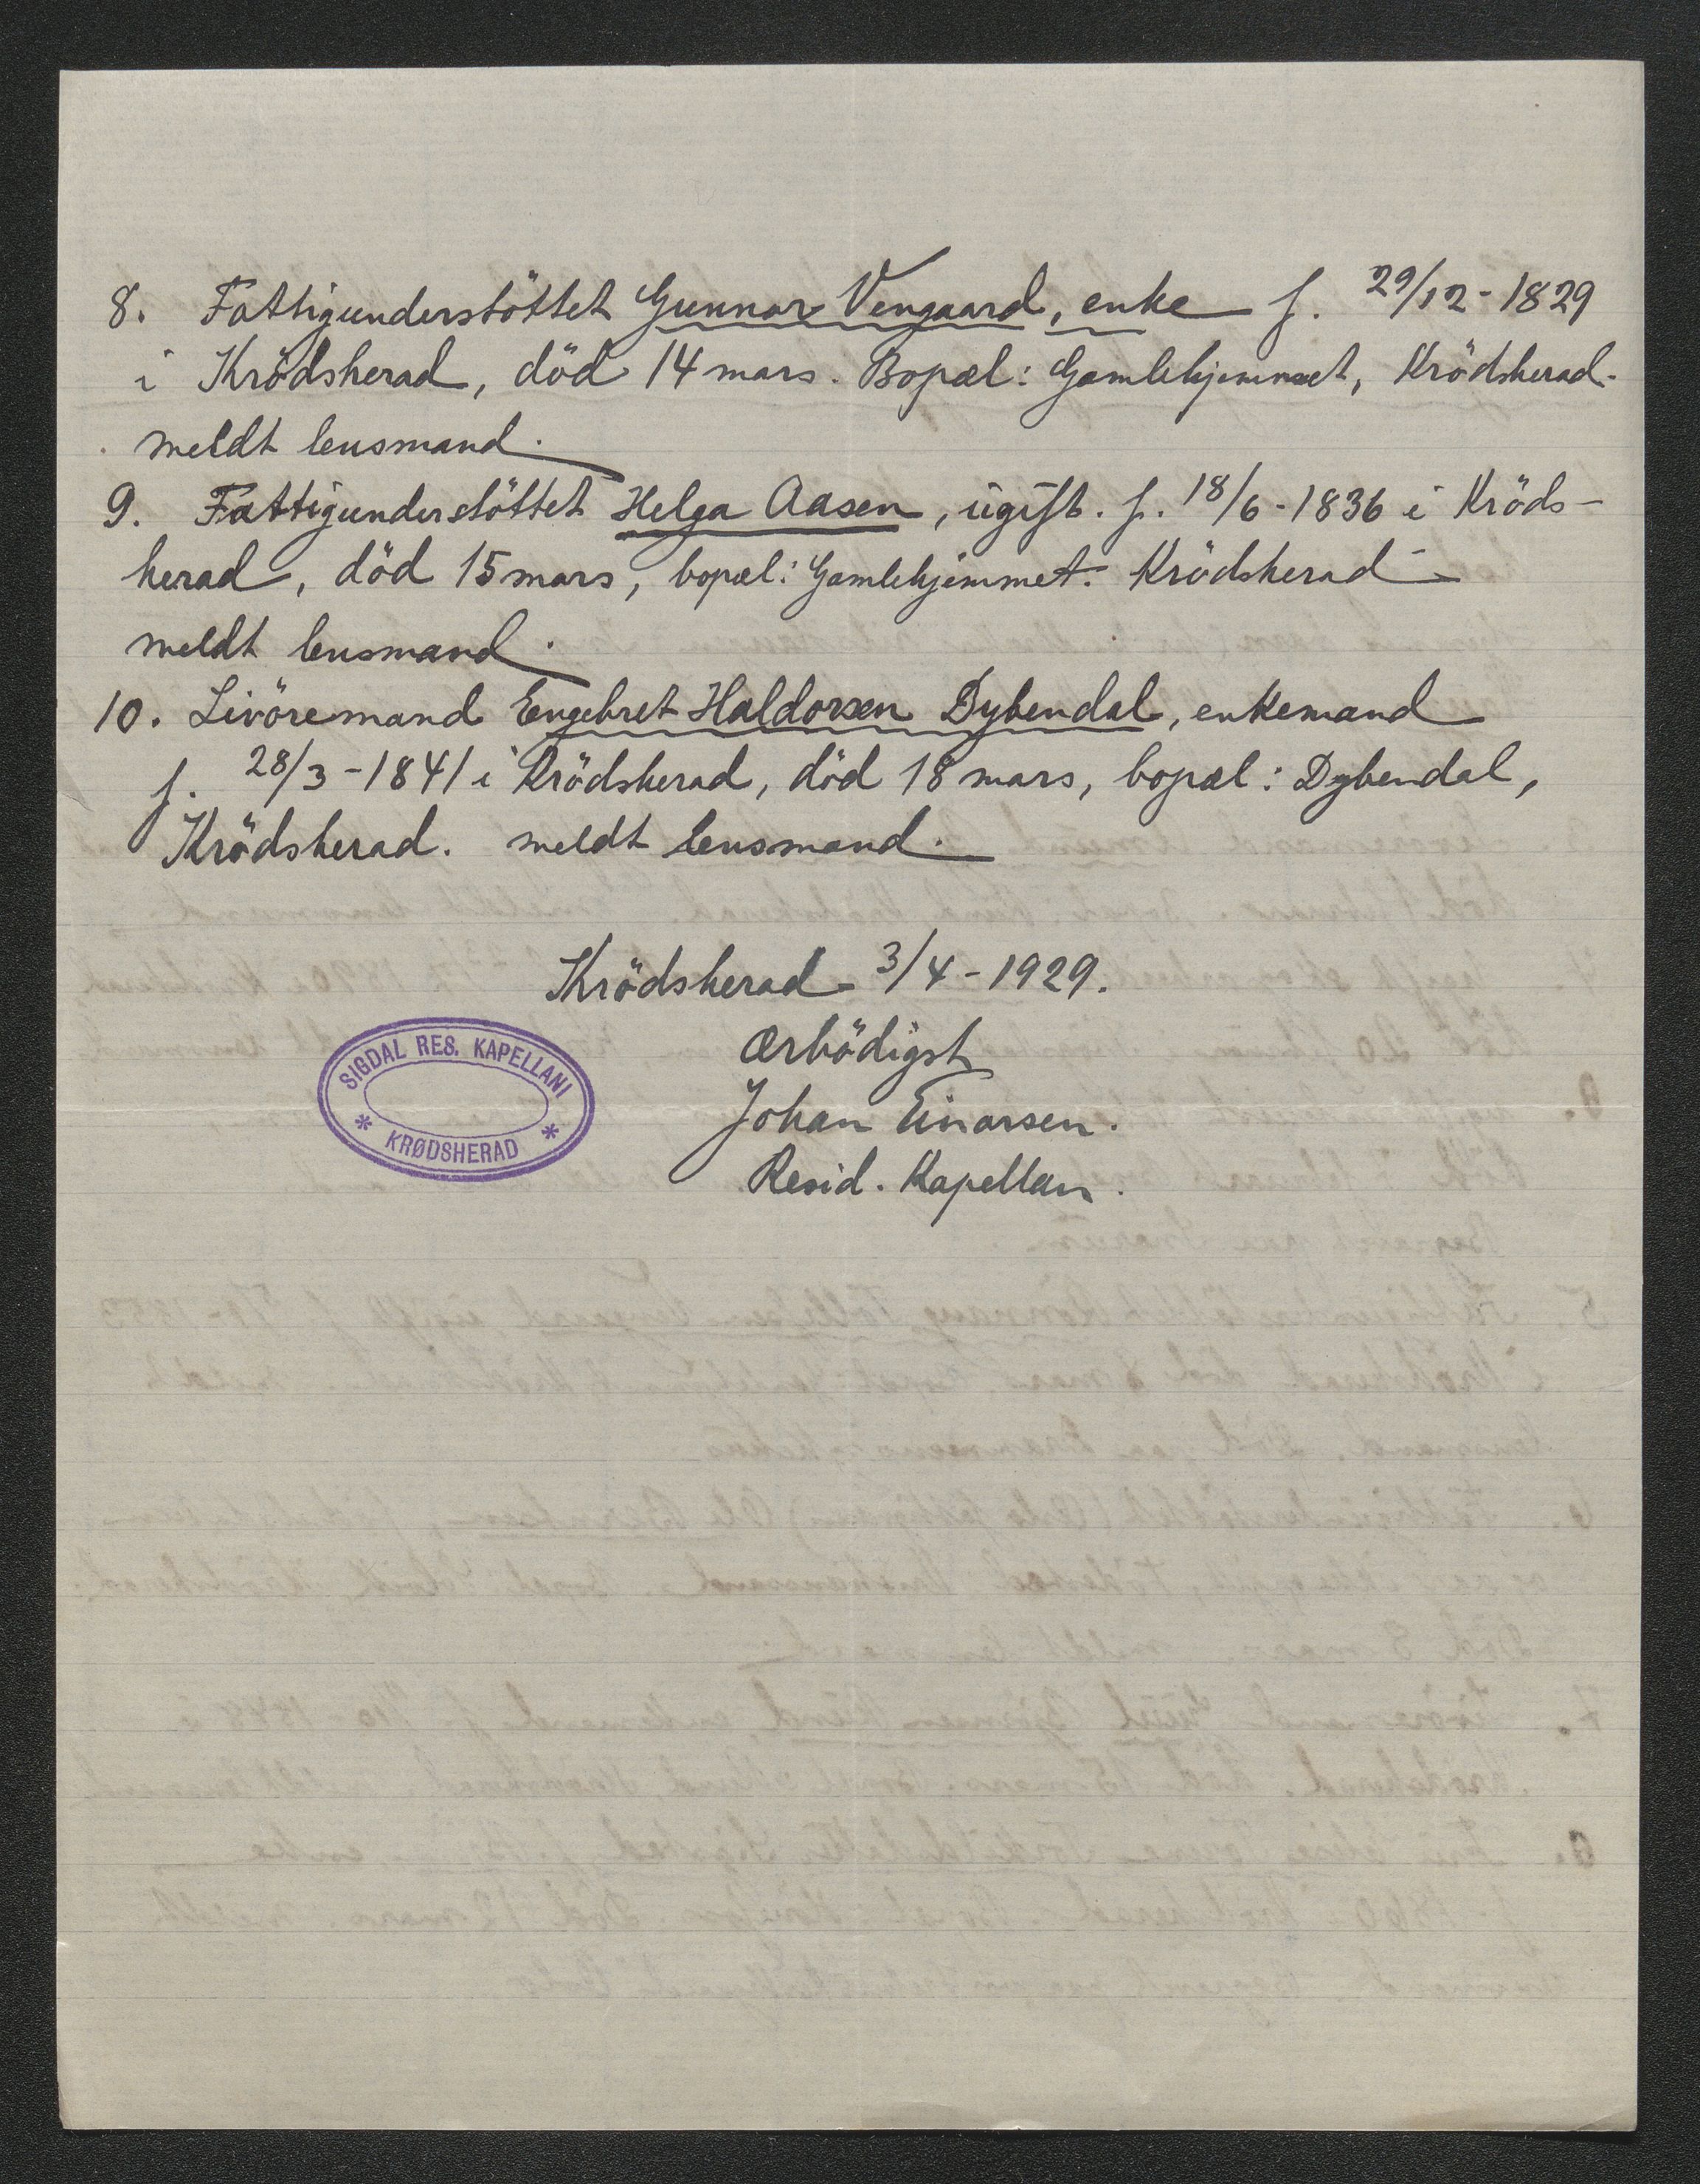 8. Fattigunderstöttet Gunnor Vengaard, enke f. 29/12-1829
i Krödsherad, död 14 mars. Bopæl: Gamlehjemmet, Krödsherad.
meldt lensmand.
9. Fattigunderstöttet Helga Aasen, ugift. f. 18/6-1836 i Kröds-
herad, död 15 mars, bopæl: Gamlehjemmet. Krödsherad -
meldt lensmand.
10. Livöremand Engebret Haldorsen Dybendal, enkemand
f. 28/3-1841 i Krödsherad, död 18 mars, bopæl: Dybendal,
Krödsherad. meldt lensmand.
Krödsherad 3/4-1929.
ærbödigst
Johan Einarsen.
Resid. Kapellan.
SIGDAL RES. KAPELLANI
* KRØDSHERAD *